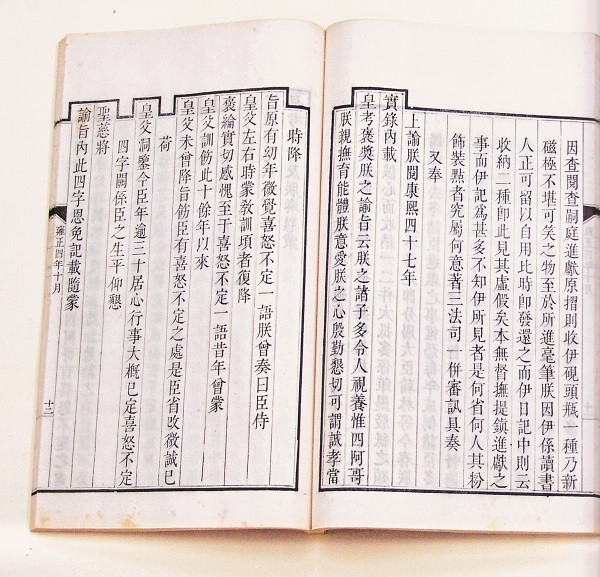 因查閱查嗣庭進獻原摺則收伊硯頭瓶一種乃新
磁極不堪可笑之物至於所進毫筆朕因伊係讀書
人正可留以自用比時卽發還之而伊日記中則云
收納二種卽此見其虛假矣本無督撫提鎮進獻之
事而伊記爲甚多不知伊所見者是何省何人其枌
飾裝點者究屬何意著三法司一倂審訊具奏
又奉
上諭朕閱康熙四十七年
實錄內載
皇考褒獎朕之諭旨云朕之諸子多令人視養惟四阿哥
朕親撫育能體朕意愛朕之心殷勤懇切可謂誠孝當
時降
旨原有幼年微覺喜怒不定一語朕曾奏曰臣侍
皇父左右時蒙教訓項者復降
褒綸實切感愧至于喜怒不定一語昔年曾蒙
皇父訓飭此十餘年以來
皇父未曾降旨飭臣有喜怒不定之處是臣省改微誠已
荷
皇父洞鑒今臣年逾三十居心行事大槪已定喜怒不定
四字關係臣之生平仰懇
聖慈將
諭旨內此四字恩免記載隨蒙
雍正四年十月